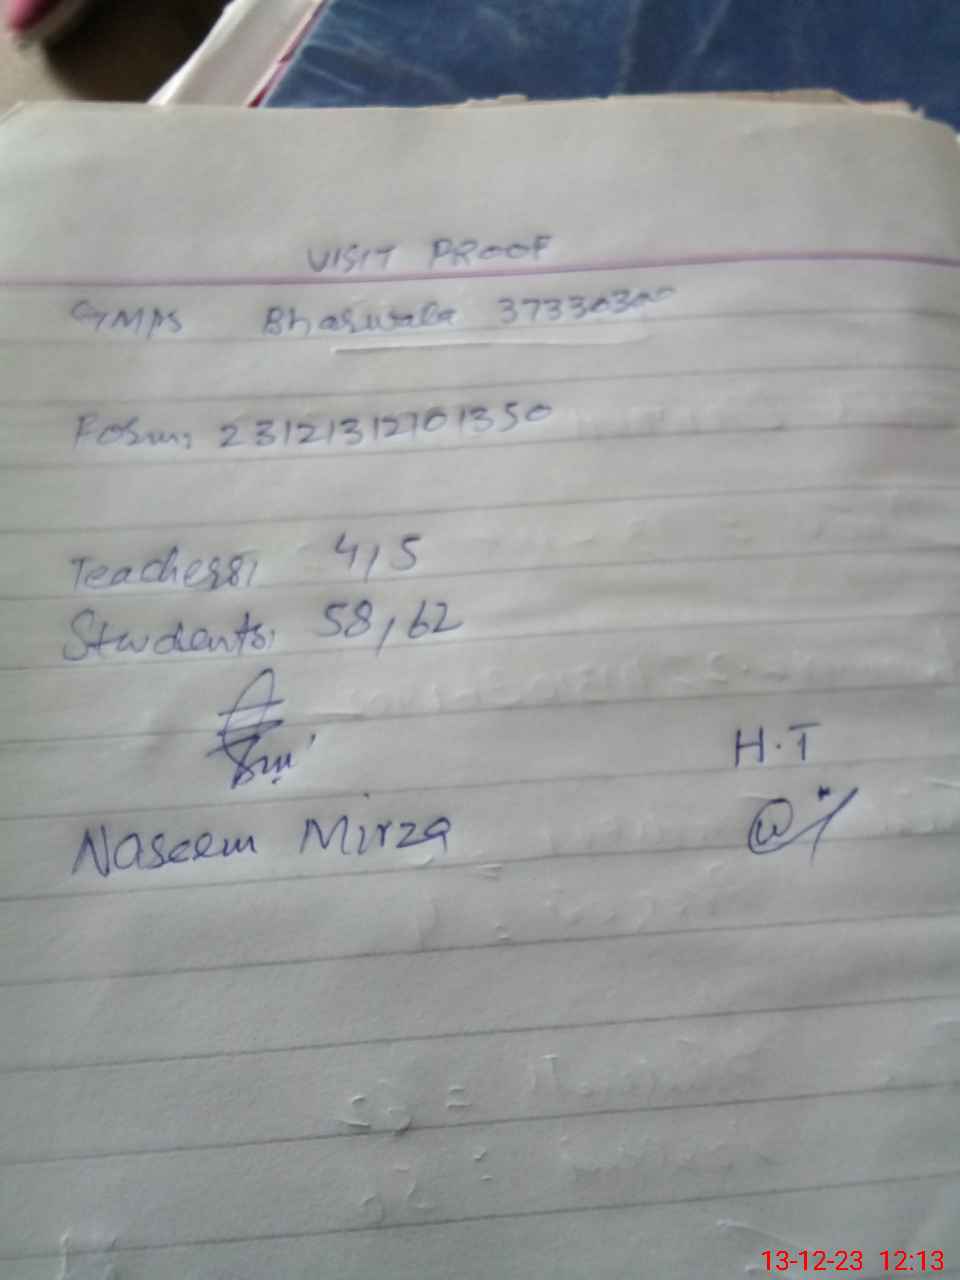 VISIT PROOF
GMPS Bharwala 37330300
Form, 23121312701350
Teachers, 4,5
Students, 58,62
H.T
Naseem Mirza
13-12-23 12:13